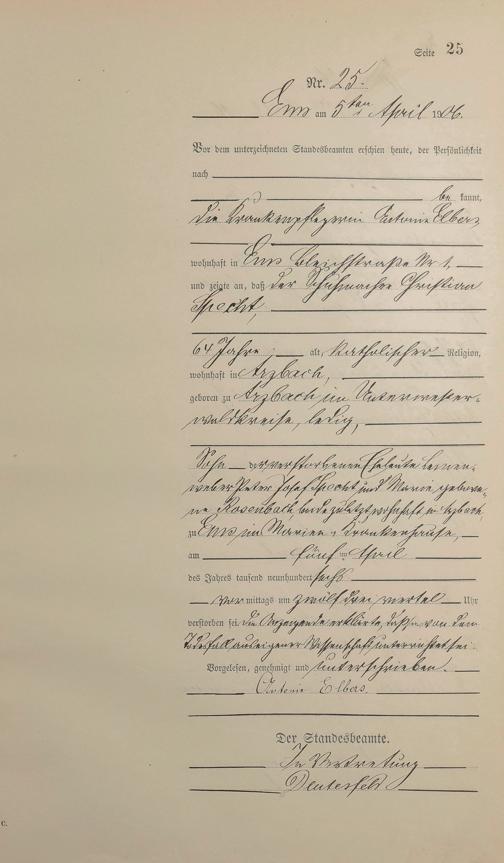 Seite 25
Nr. 25.
Ems am 5ten April 1906.
Vor dem unterzeichneten Standesbeamten erschien heute, der Persönlichkeit
nach
be kannt,
die Krankenpflegerin Antonie Elbers
wohnhaft in Ems Bleichstraße Nr 1,
und zeigte an, daß der Schuhmacher Christian
Specht,
64 Jahre, alt, katholischer Religion,
wohnhaft in Arzbach,
geboren zu Arzbach im Unterwester-
waldkreise, ledig,
Sohn der verstorbenen Eheleute Leinen-
weber Peter Josef Specht und Marie gebore-
ne Rosenbach, beide zuletzt wohnhaft in Arzbach,
zu Ems im Marien-Krankenhause,
am fünf ten April
des Jahres tausend neunhundert sechs
vor mittags um zwölf drei viertel Uhr
verstorben sei. die Anzeigende erklärte, daß sie von dem
Todesfall aus eigener Wissenschaft unterrichtet sei.
Vorgelesen, genehmigt und unterschrieben.
Antonie Elbers.
Der Standesbeamte.
In Vertretung
C.